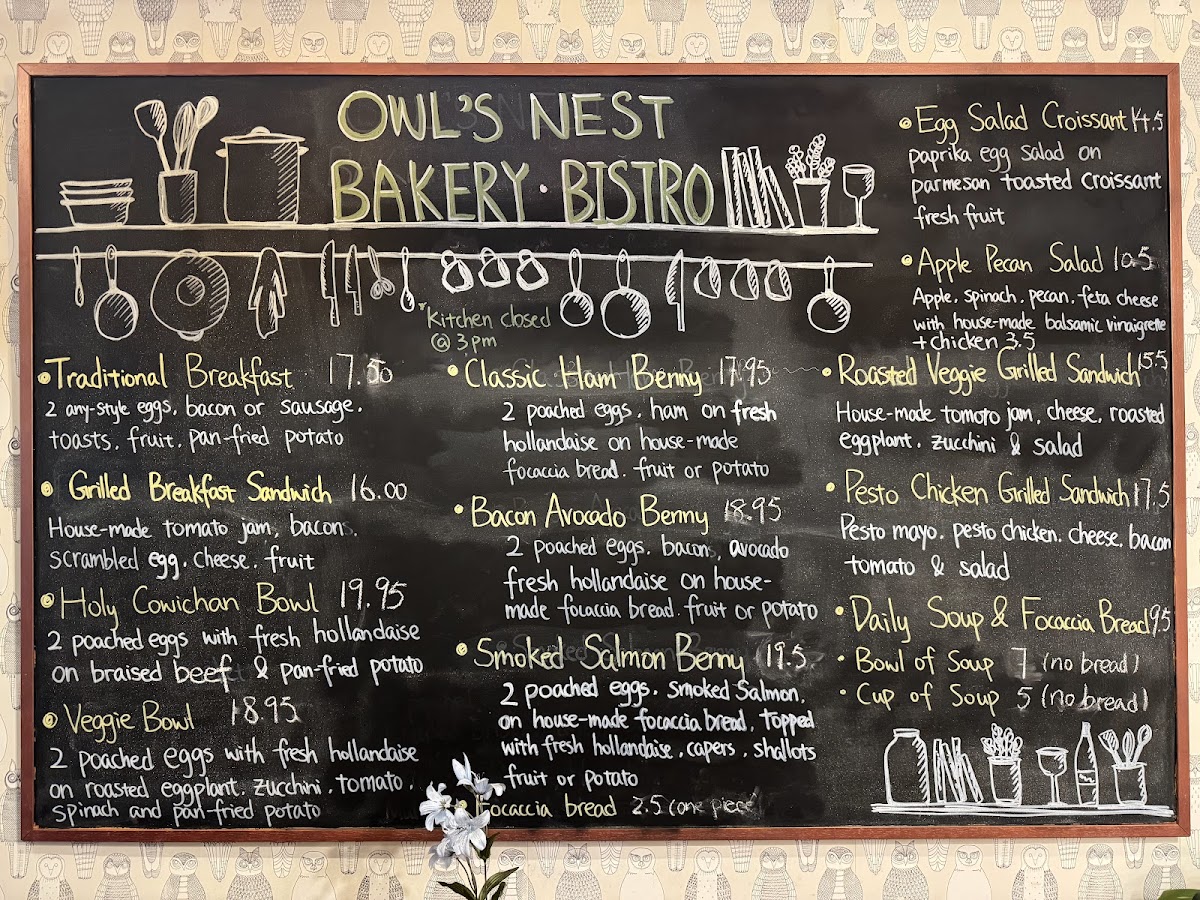 OWL'S NEST
BAKERY · BISTRO
*Kitchen closed
@ 3pm
Traditional Breakfast 17.50
2 any-style eggs, bacon or sausage,
toasts, fruit, pan-fried potato
Grilled Breakfast Sandwich 16.00
House-made tomato jam, bacon,
scrambled egg, cheese, fruit
Holy Cowichan Bowl 19.95
2 poached eggs with fresh hollandaise
on braised beef & pan-fried potato
Veggie Bowl 18.95
2 poached eggs with fresh hollandaise
on roasted eggplant, zucchini, tomato,
spinach and pan-fried potato
Classic Ham Benny 17.95
2 poached eggs, ham on fresh
hollandaise on house-made
focaccia bread, fruit or potato
Bacon Avocado Benny 18.95
2 poached eggs, bacon, avocado
fresh hollandaise on house-
made focaccia bread. fruit or potato
Smoked Salmon Benny 19.5
2 poached eggs, smoked Salmon,
on house-made focaccia bread, topped
with fresh hollandaise, capers, shallots
fruit or potato
Focaccia bread 2.5 (one piece)
Egg Salad Croissant 14.5
paprika egg salad on
parmesan toasted croissant
fresh fruit
Apple Pecan Salad 10.5
Apple, spinach, pecan, feta cheese
with house-made balsamic vinaigrette
+ chicken 3.5
Roasted Veggie Grilled Sandwich 15.5
House-made tomato jam, cheese, roasted
eggplant, zucchini & salad
Pesto Chicken Grilled Sandwich 17.5
Pesto mayo, pesto chicken, cheese, bacon
tomato & salad
Daily Soup & Focaccia Bread 9.5
· Bowl of Soup 7 (no bread)
· Cup of Soup 5 (no bread)